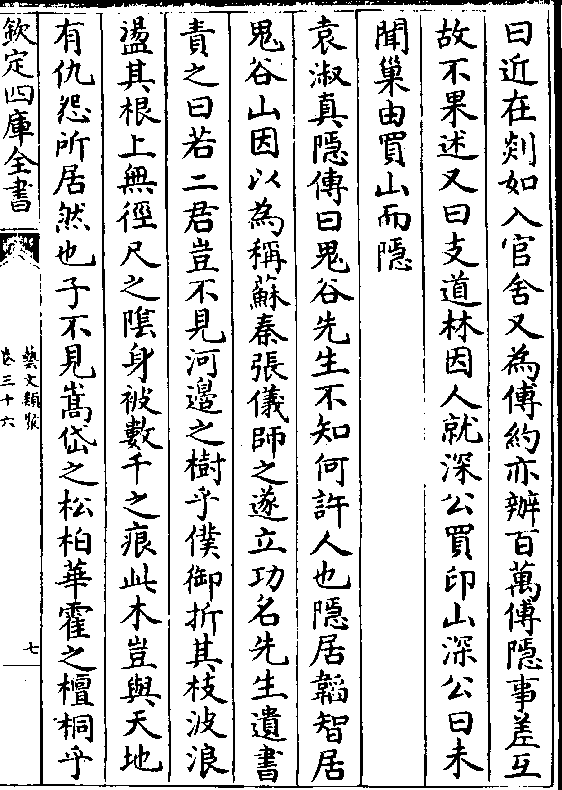 曰近在剡如入官舍又為傅約亦辦百萬傅隱事差互
故不果述又曰支道林因人就深公買印山深公曰未
聞巢由買山而隱
袁淑真隱傳曰鬼谷先生不知何許人也隱居韜智居
鬼谷山因以為稱蘇秦張儀師之遂立功名先生遺書
責之曰若二君豈不見河邉之樹乎僕御折其枝波浪
盪其根上無徑尺之隂身被數千之痕此木豈與天地
有仇怨所居然也子不見嵩岱之松柏華霍之檀桐乎
欽定四庫全書
藝文類聚
卷三十六
七